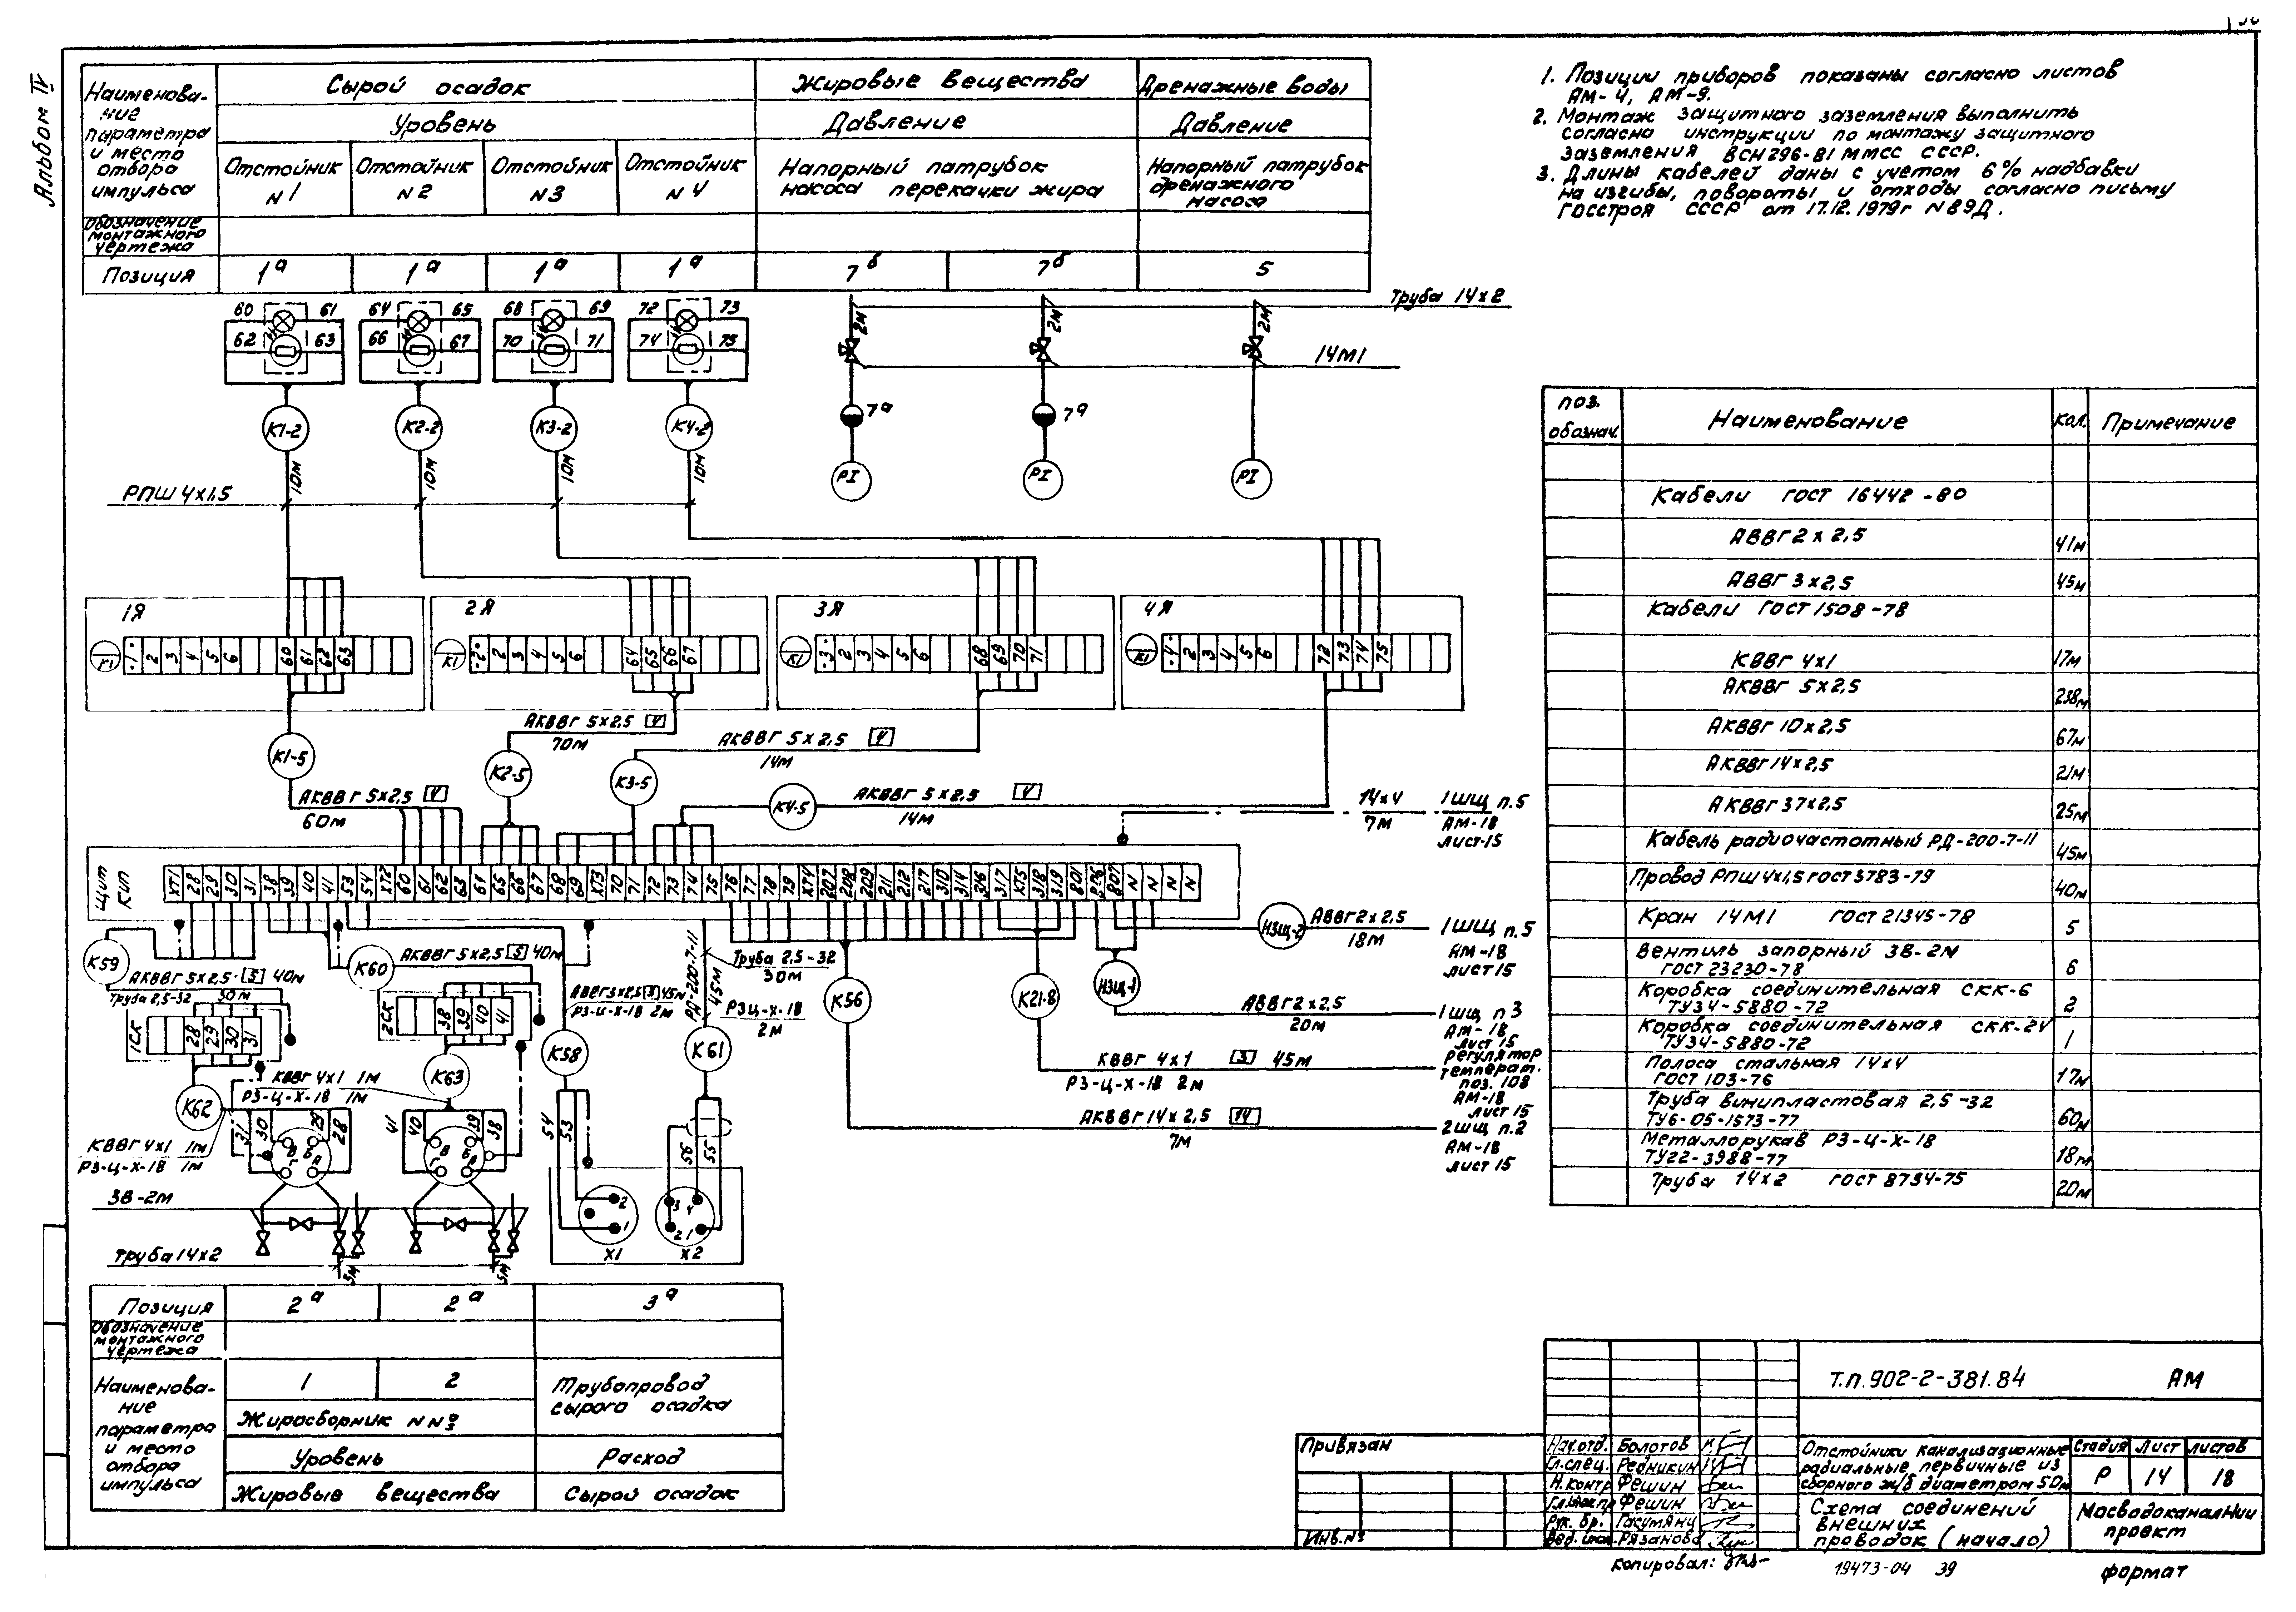 Альбом IV
Наименова-
ние
параметра
и место
отбора
импульса
Сырой осадок
Жировые вещества
Дренажные воды
Уровень
Давление
Давление
Отстойник
N 1
Отстойник
N 2
Отстойник
N 3
Отстойник
N 4
Напорный патрубок
насоса перекачки жира
Напорный патрубок
дренажного
насоса
Обозначение
монтажного
чертежа
Позиция
1а
1а
1а
1а
7б
7б
5
1. Позиции приборов показаны согласно листов
АМ-4, АМ-9.
2. Монтаж защитного заземления выполнить
согласно инструкции по монтажу защитного
заземления ВСН 296-81 ММСС СССР.
3. Длины кабелей даны с учетом 6% надбавки
на изгибы, повороты и отходы согласно письму
Госстроя СССР от 17.12.1979г N 89Д.
60 61 64 65 68 69 72 73
62 63 66 67 70 71 74 75
2М 2М 2М
Труба 14х2
14М1
7а 7а
К1-2 К2-2 К3-2 К4-2
PI PI PI
10М 10М 10М 10М
РПШ 4х1,5
1Я 2Я 3Я 4Я
К1 ·1· 2 3 4 5 6 60 61 62 63
К1 ·2· 2 3 4 5 6 64 65 66 67
К1 ·3· 2 3 4 5 6 68 69 70 71
К1 ·4· 2 3 4 5 6 72 73 74 75
АКВВГ 5х2,5 4
70М
АКВВГ 5х2,5 4
14М
К1-5 К2-5 К3-5 К4-5
АКВВГ 5х2,5 4
60М
АКВВГ 5х2,5 4
14М
14х4
7М
1ЩЩ п.5
АМ-18
лист-15
Щит
КИП
ХТ1 28 29 30 31 38 39 40 41 53 54 ХТ2 60 61 62 63 64 65 66 67 68 69 ХТ3 70 71 72 73 74 75 76 77 78 79 ХТ4 207 208 209 211 212 217 310 314 316 317 ХТ5 318 319 801 807 N N N N
К59
АКВВГ 5х2,5 3 40м
Труба 2,5-32 30м
К60
АКВВГ 5х2,5 3 40м
АВВГ3х2,5 3 45м
РЗ-Ц-Х-18 2м
РД-200-7-11
45М
Труба 2,5-32
30М
РЗЦ-Х-18
2М
НЗЩ-2
АВВГ2х2,5
18М
1ЩЩ п.5
АМ-18
лист15
К56 К21-8 НЗЩ-1
АВВГ2х2,5
20м
1ЩЩ п3
АМ-18
лист15
КВВГ 4х1 3 45м
РЗ-Ц-Х-18 2м
регулятор
температ.
поз. 108
АМ-18
лист15
АКВВГ14х2,5 14
7М
2ЩЩ п.2
АМ-18
лист15
1СК 28 29 30 31
2СК 38 39 40 41
К62 К63 К58 К61
КВВГ 4х1 1М
РЗ-Ц-Х-18 1М
КВВГ 4х1 1м
РЗ-Ц-Х-18 1М
31 30 29 28
41 40 39 38
В Б Г А
В Б Г А
54 53
56 55
2 1
3 4 2 1
Х1 Х2
ЗВ-2М
Труба14х2
5М 5М
Позиция
2а 2а 3а
Обозначение
монтажного
чертежа
Наименова-
ние
параметра
и место
отбора
импульса
1 2
Жиросборник NNº
Трубопровод
сырого осадка
Уровень
Расход
Жировые вещества
Сырой осадок
поз.
обознач.
Наименование
кол.
Примечание
Кабели ГОСТ 16442-80
АВВГ2х2,5 41м
АВВГ 3х2,5 45м
Кабели ГОСТ1508-78
КВВГ 4х1 17м
АКВВГ 5х2,5 238м
АКВВГ 10х2,5 67м
АКВВГ14х2,5 21м
АКВВГ37х2,5 25м
Кабель радиочастотный РД-200-7-11 45м
Провод РПШ4х1,5 ГОСТ5783-79 40м
Кран 14М1 ГОСТ 21345-78 5
Вентиль запорный ЗВ-2М
ГОСТ 23230-78 6
Коробка соединительная СКК-6
ТУ34-5880-72 2
Коробка соединительная СКК-24
ТУ34-5880-72 1
Полоса стальная 14х4
ГОСТ 103-76 17м
Труба винипластовая 2,5-32
ТУ6-05-1573-77 60м
Металлорукав РЗ-Ц-Х-18
ТУ22-3988-77 18м
Труба 14х2 ГОСТ 8734-75 20м
Привязан
Инв.Nº
Нач.отд. Болотов
Гл.спец. Редникин
Н.контр Фешин
Гл.инж.пр Фешин
Рук. бр. Гасумянц
Вед. инж. Рязанова
Т.П.902-2-381.84 АМ
Отстойники канализационные
радиальные первичные из
сборного ж/б диаметром 50м
Стадия Лист Листов
Р 14 18
Схема соединений
внешних
проводок (начало)
МосводоканалНИИ
проект
Копировал:
19473-04 39
формат